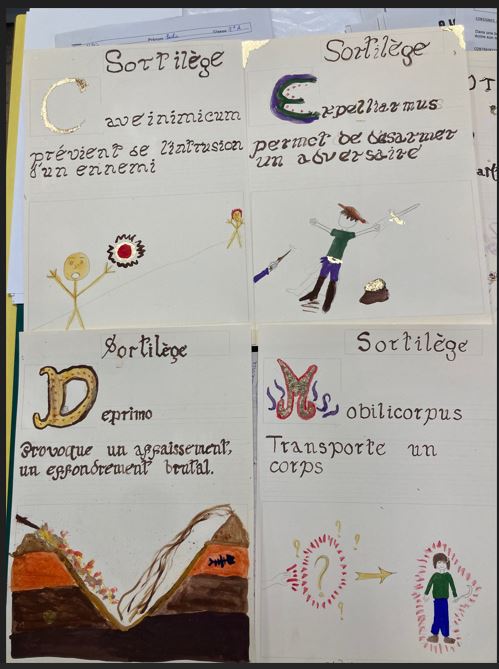 Prénom
Classe
Sortilège
Caveinimicum
prévient de l'intrusion
d'un ennemi
Sortilège
Expelliarmus
permet de désarmer
un adversaire
Sortilège
Deprimo
Provoque un affaissement,
un effondrement brutal.
Sortilège
Mobilicorpus
Transporte un
corps
? ? ? ? ?